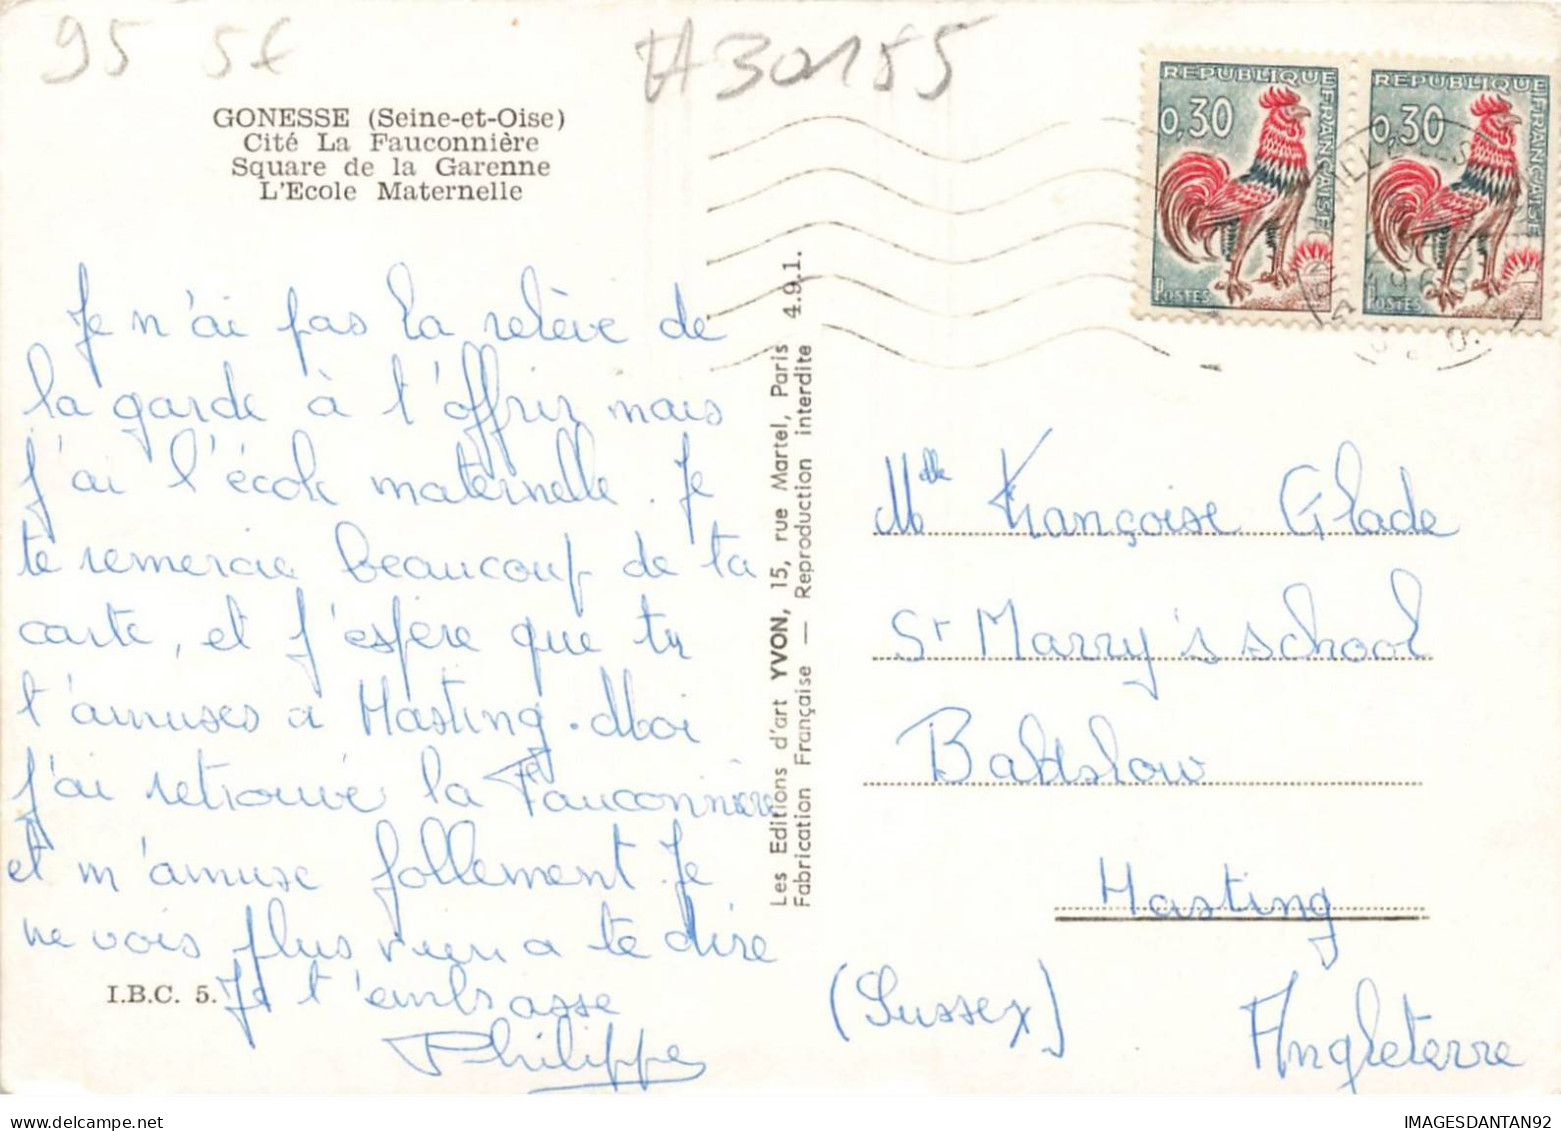 95 5€
A30155
GONESSE (Seine-et-Oise)
Cité La Fauconnière
Square de la Garenne
L'Ecole Maternelle
REPUBLIQUE FRANÇAISE
0,30
POSTES
REPUBLIQUE FRANÇAISE
0,30
POSTES
Je n'ai pas la relève de
la garde à t'offrir mais
j'ai l'école maternelle. Je
te remercie beaucoup de ta
carte, et j'espère que tu
t'amuses a Hasting. Moi
j'ai retrouvé la Fauconnière
et m'amuse follement. Je
ne vois plus rien a te dire
Je t'embrasse
Philippe
I.B.C. 5.
Les Editions d'art YVON, 15, rue Martel, Paris 4.9.1.
Fabrication Française — Reproduction interdite
Mlle Françoise Glade
St Marry's school
Baldslow
Hasting
(Sussex) Angleterre
IMAGESDANTAN92